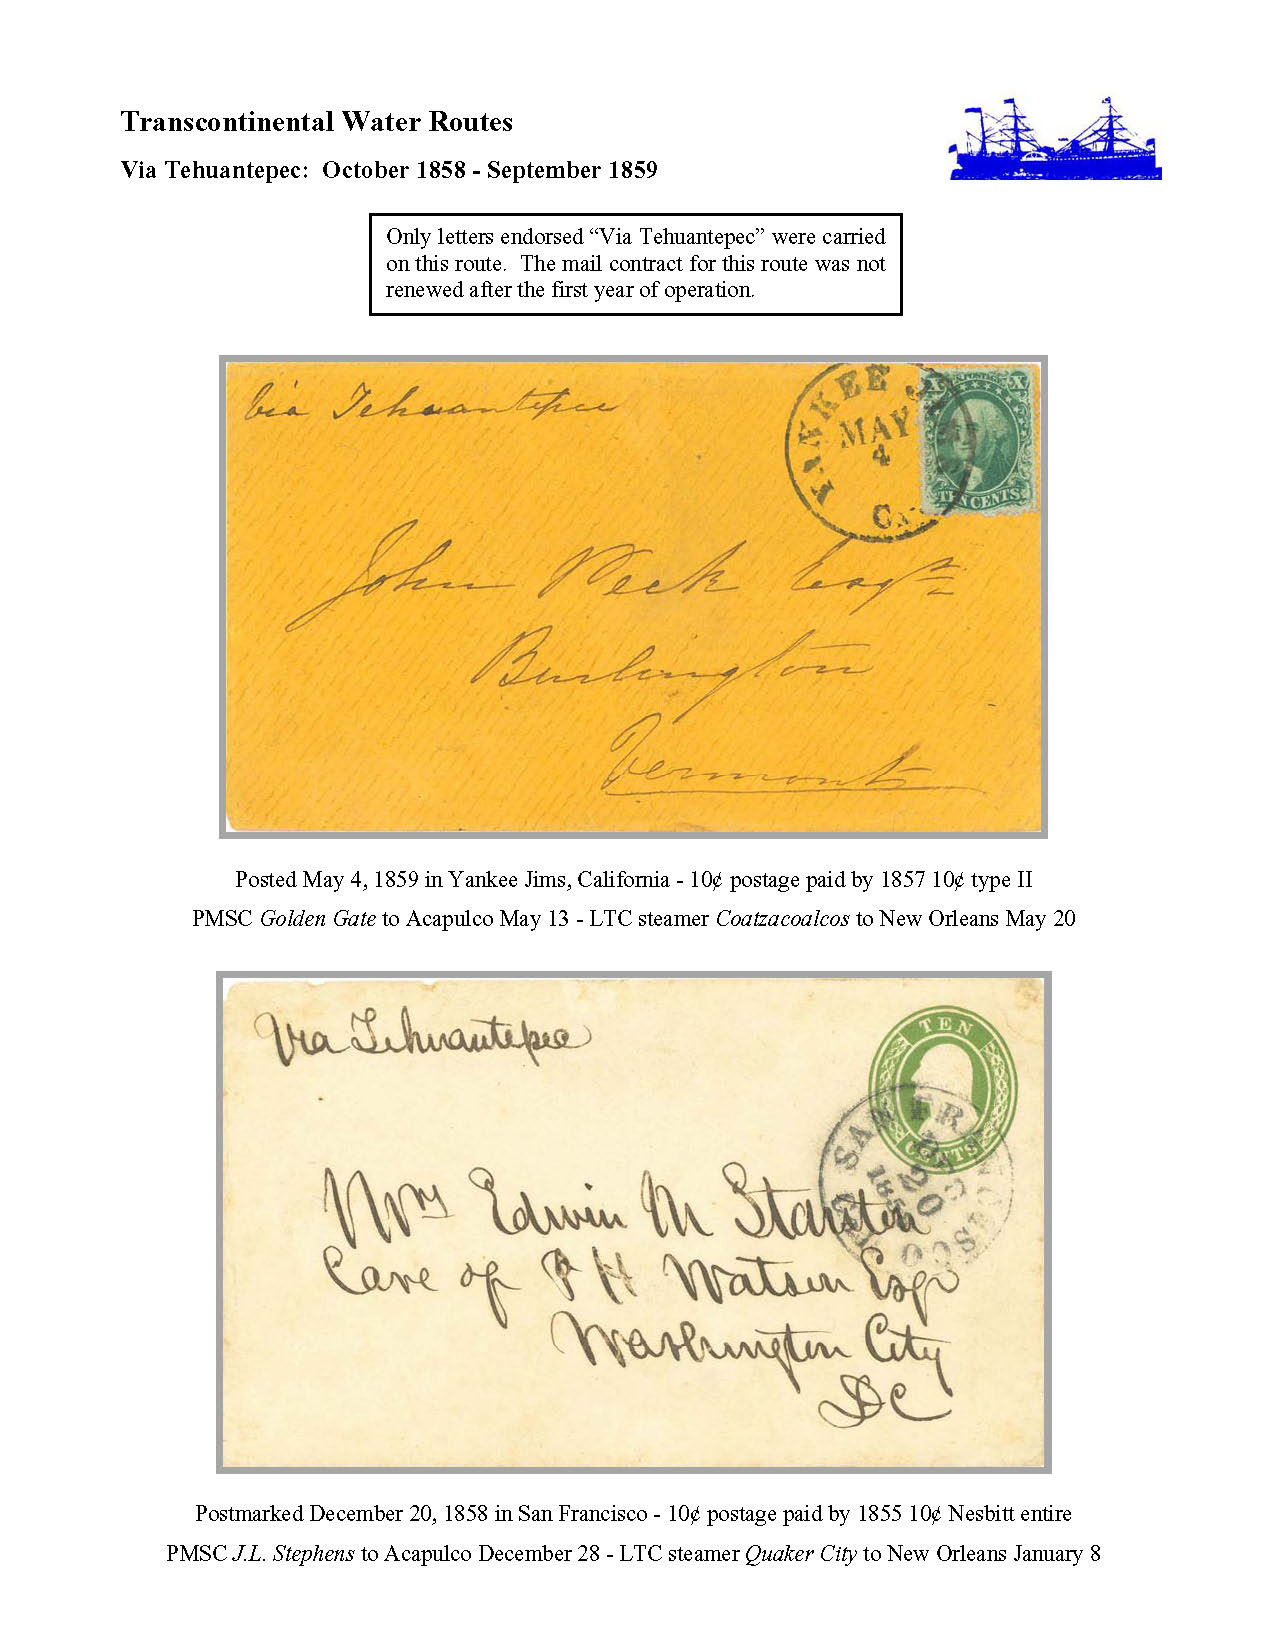 Transcontinental Water Routes
Via Tehuantepec:  October 1858 - September 1859
Only letters endorsed “Via Tehuantepec” were carried
on this route.  The mail contract for this route was not
renewed after the first year of operation.
Via Tehuantepec
YANKEE JIMS
MAY
4
CAL
X U.S. POSTAGE X
TEN CENTS
John Peck Esqr
Burlington
Vermont
Posted May 4, 1859 in Yankee Jims, California - 10¢ postage paid by 1857 10¢ type II
PMSC Golden Gate to Acapulco May 13 - LTC steamer Coatzacoalcos to New Orleans May 20
Via Tehuantepec
TEN
CENTS
SAN FRANCISCO
DEC
20
Mrs Edwin M Stanton
Care of P H Watson Esqr
Washington City
DC
Postmarked December 20, 1858 in San Francisco - 10¢ postage paid by 1855 10¢ Nesbitt entire
PMSC J.L. Stephens to Acapulco December 28 - LTC steamer Quaker City to New Orleans January 8